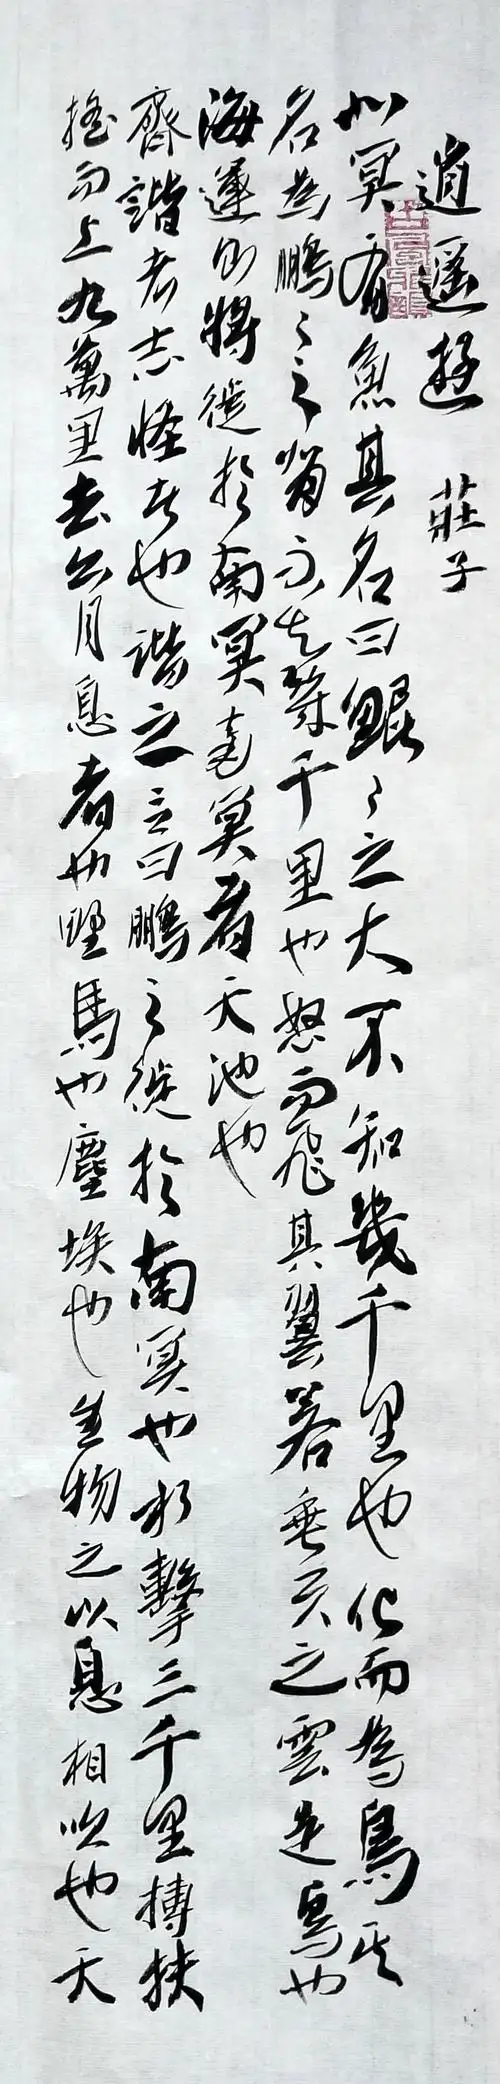 逍遥遊　莊子
北冥有魚其名曰鯤〻之大不知幾千里也化而為鳥其
名為鵬〻之背不知幾千里也怒而飛其翼若垂天之雲是鳥也
海運則將徙於南冥南冥者天池也
齊諧者志怪者也諧之言曰鵬之徙於南冥也水擊三千里摶扶
搖而上九萬里去六月息者也野馬也塵埃也生物之以息相吹也天